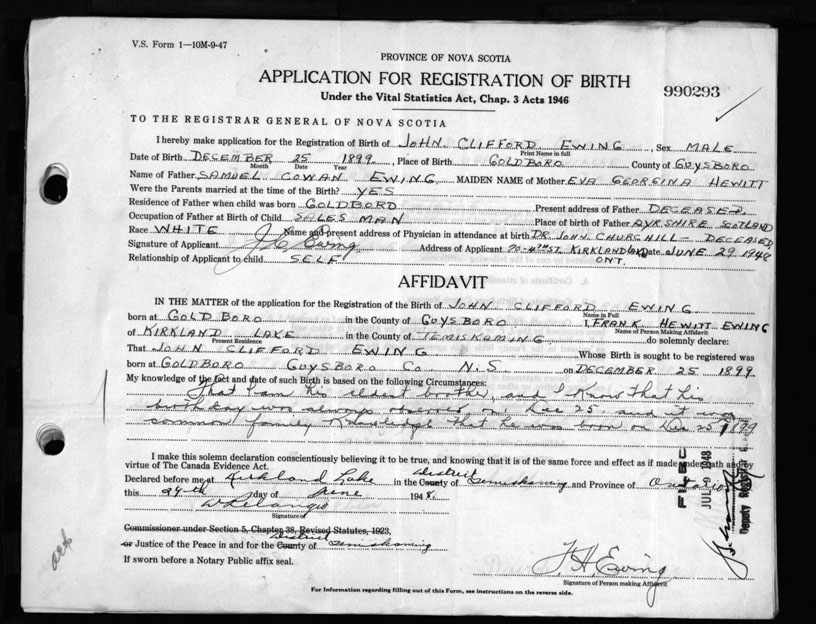 V.S. Form 1—10M-9-47
PROVINCE OF NOVA SCOTIA
APPLICATION FOR REGISTRATION OF BIRTH
990293
Under the Vital Statistics Act, Chap. 3 Acts 1946
TO THE REGISTRAR GENERAL OF NOVA SCOTIA
I hereby make application for the Registration of Birth of JOHN CLIFFORD EWING, Sex MALE
Print Name in full
Date of Birth DECEMBER 25 1899, Place of Birth GOLDBORO County of GUYSBORO
Month Day Year
Name of Father SAMUEL COWAN EWING MAIDEN NAME of Mother EVA GEORGINA HEWITT
Were the Parents married at the time of the Birth? YES
Residence of Father when child was born GOLDBORO Present address of Father DECEASED.
Occupation of Father at Birth of Child SALES MAN Place of birth of Father AYRSHIRE SCOTLAND
Race WHITE Name and present address of Physician in attendance at birth DR. JOHN CHURCHILL DECEASED
Signature of Applicant J C Ewing Address of Applicant KIRKLAND Date JUNE 29 1948
Relationship of Applicant to child SELF ONT.
AFFIDAVIT
IN THE MATTER of the application for the Registration of the Birth of JOHN CLIFFORD EWING
Name in Full
born at GOLD BORO in the County of GUYSBORO I, FRANK HEWITT EWING
Name of Person Making Affidavit
of KIRKLAND LAKE in the County of TEMISKAMING do solemnly declare:
Present Residence
That JOHN CLIFFORD EWING Whose Birth is sought to be registered was
born at GOLDBORO GUYSBORO Co. N.S on DECEMBER 25 1899.
My knowledge of the fact and date of such Birth is based on the following Circumstances:
That I am his eldest brother, and I know that his
birthday was always observed on Dec 25. and it was
common family knowledge that he was born on Dec 25 1899
I make this solemn declaration conscientiously believing it to be true, and knowing that it is of the same force and effect as if made under oath and by
virtue of The Canada Evidence Act.
Declared before me at Kirkland Lake in the County of District Temiskaming and Province of Ontario
this 29th day of June 1948.
Signature of
Commissioner under Section 5, Chapter 38, Revised Statutes, 1923,
or Justice of the Peace in and for the County of District Temiskaming
If sworn before a Notary Public affix seal.
F H Ewing
Signature of Person making Affidavit
For Information regarding filling out of Form, see instructions on the reverse side.
FILED
JUL 9 1948
Deputy Registrar